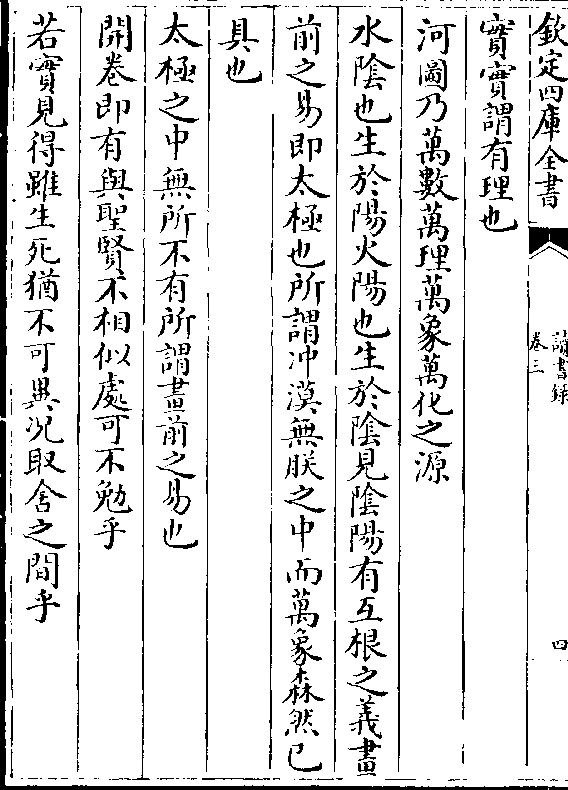 欽定四庫全書
讀書錄
卷三
四
實實謂有理也
河圖乃萬數萬理萬象萬化之源
水陰也生於陽火陽也生於陰見陰陽有互根之義畫
前之易即太極也所謂冲漠無朕之中而萬象森然已
具也
太極之中無所不有所謂畫前之易也
開卷即有與聖賢不相似處可不勉乎
若實見得雖生死猶不可異况取舍之間乎